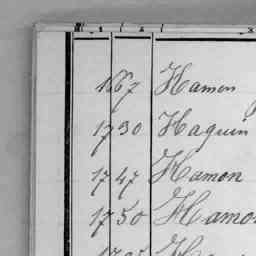 1667 Hamon
1730 Haquin
1747 Hamon
1750 Hamo